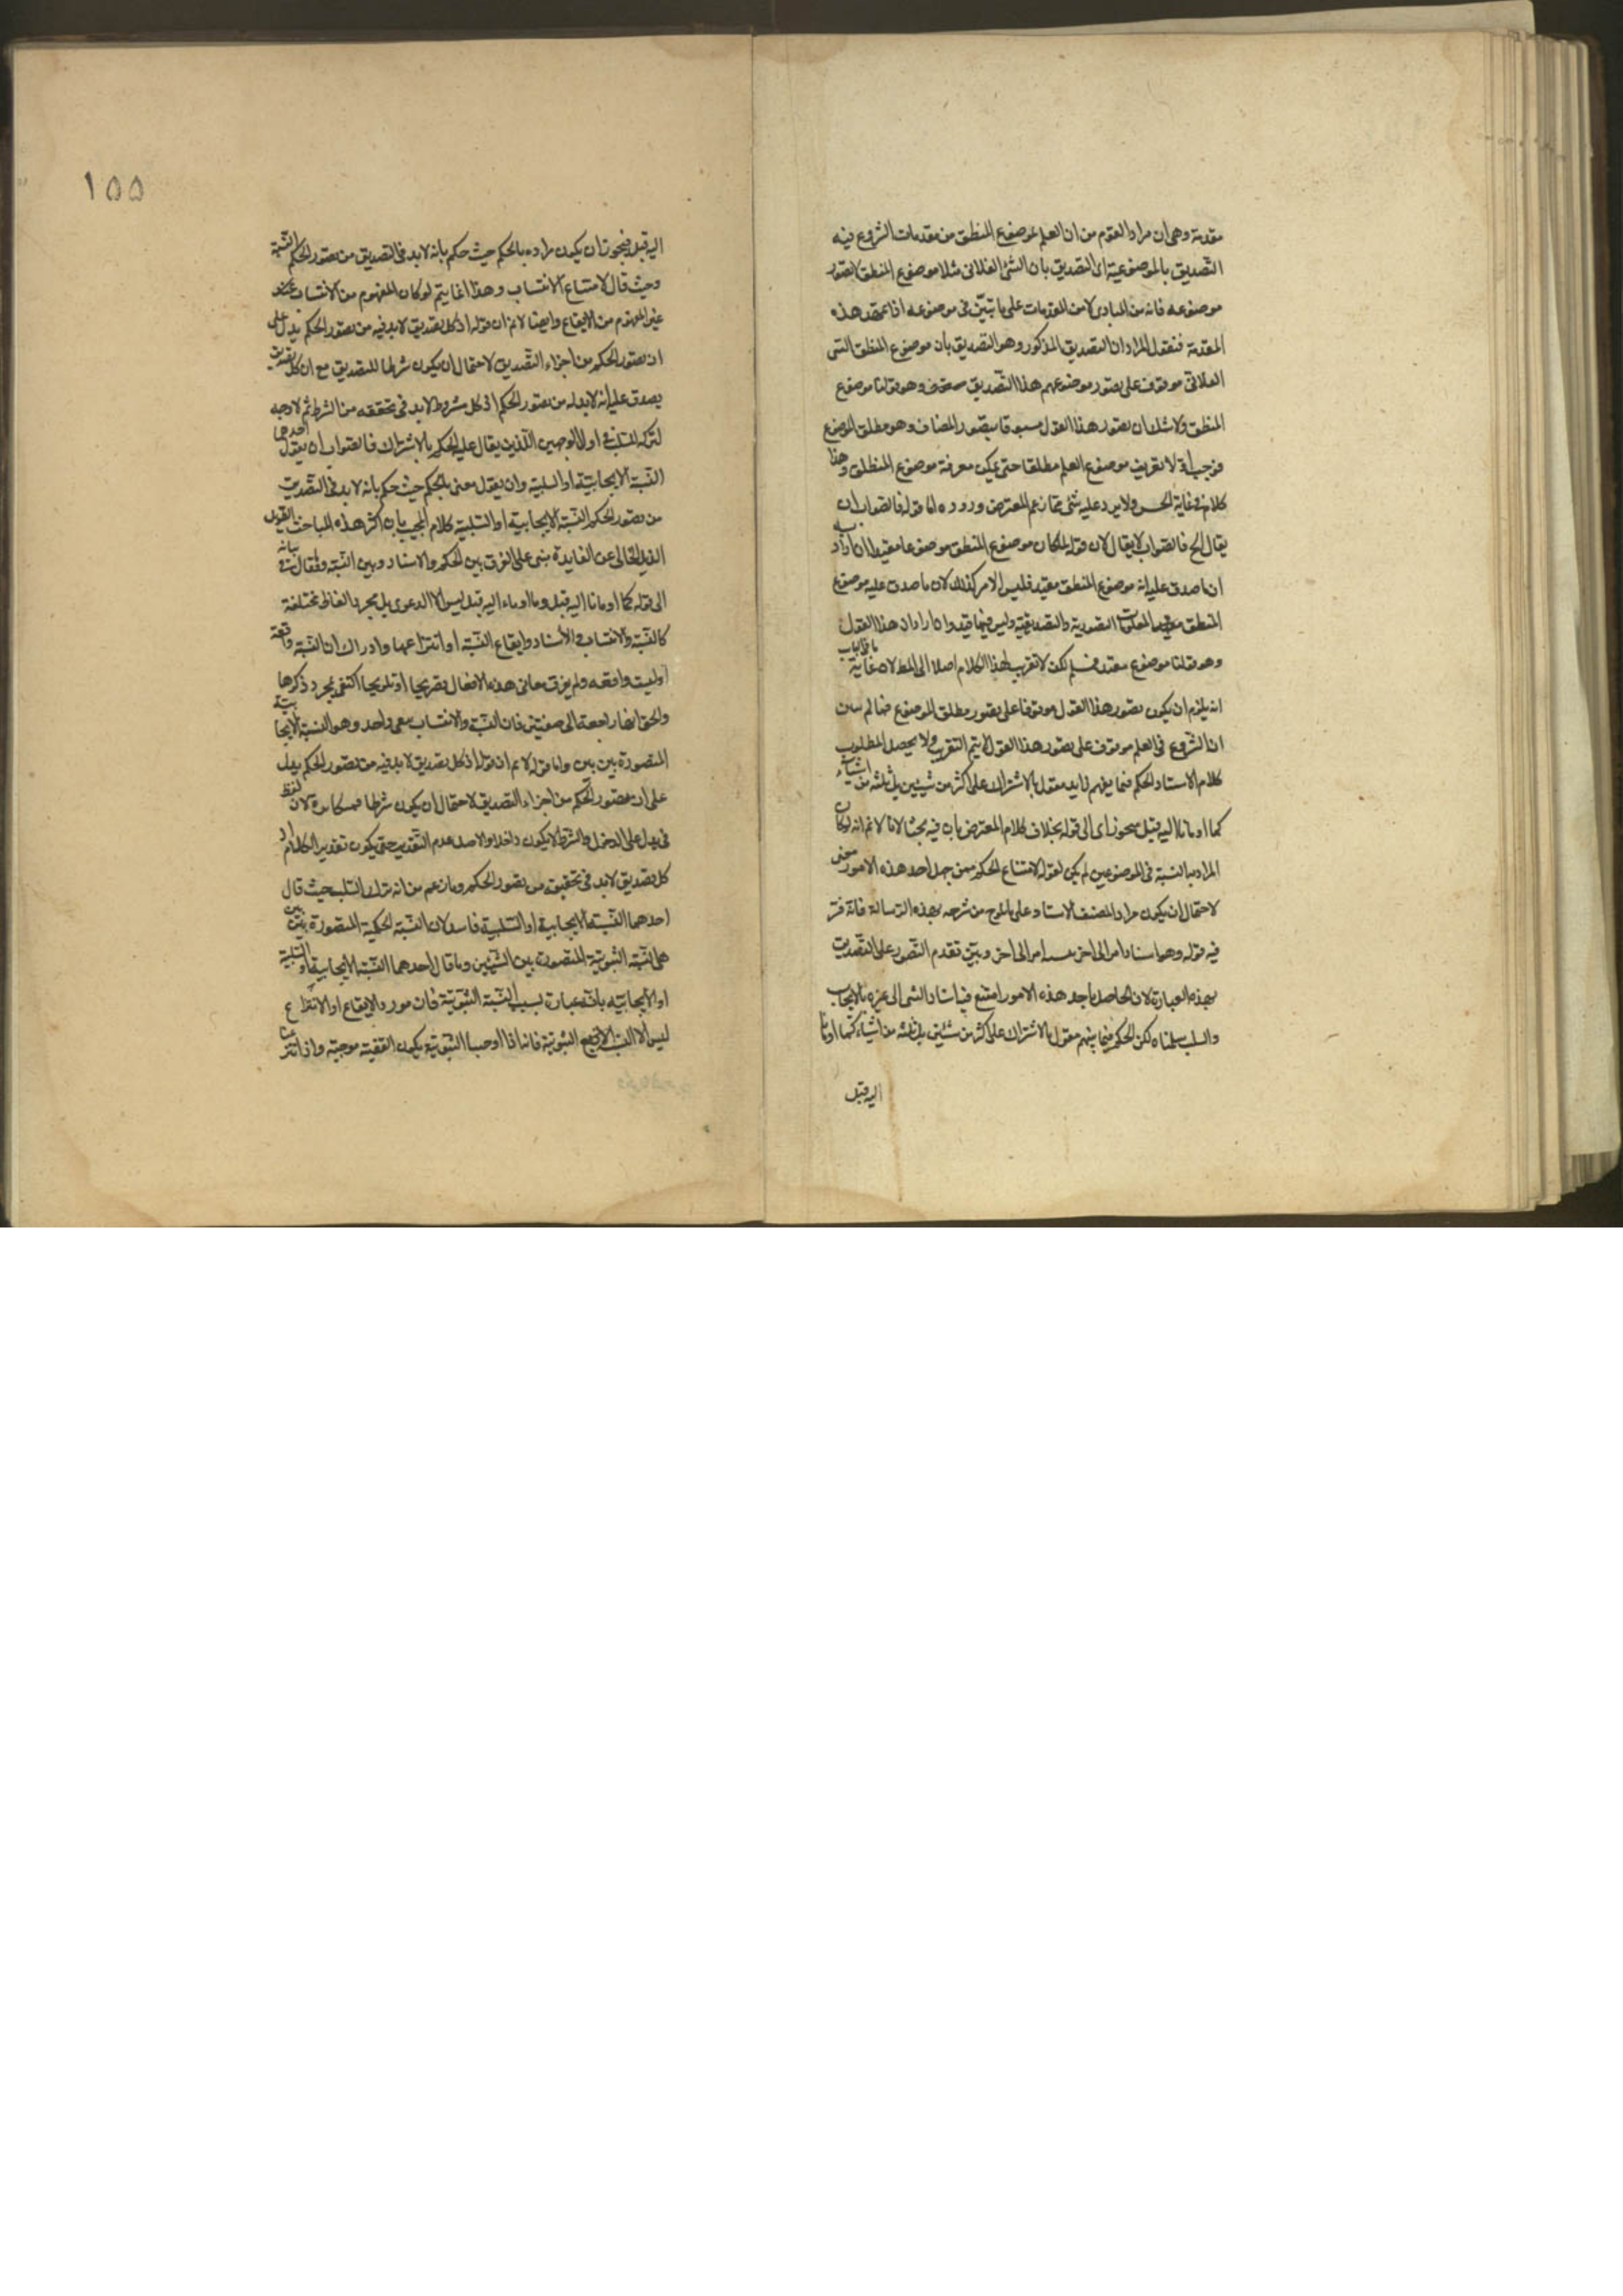 مقدمة وهى ان مراد القوم من ان العلم بموضوع المنطق من مقدمات الشروع فيه
التصديق بالموضوعية اى التصديق بان الشئ الفلانى مثلا موضوع المنطق لا تصور
موضوعه فانه من المبادى لا من المقدمات على ما تبيّن فى موضوعه اذا تمهد هذه
المقدمة فنقول المراد ان التصديق المذكور وهو التصديق بان موضوع المنطق الشئ
الفلانى موقوف على تصور موضوعهم هذا التصديق وهو قولنا موضوع
المنطق ولا شك ان تصور هذا القول مسبوقا بتصور المضاف وهو مطلق الموضوع
فوجب اولا تعريف موضوع العلم مطلقا حتى يمكن معرفة موضوع المنطق وهذا
كلام فى غاية الحسن ولا يرد عليه شئ مما زعم المعترض وروده اما قوله فالصواب ان
يقال الخ فالصواب لا يقال لان قوله لما كان موضوع المنطق موضوعا مقيدا ان اراد به
ان ما صدق عليه انه موضوع المنطق مقيد فليس الامر كذلك لان ما صدق عليه موضوع
المنطق المعلومات التصورية والتصديقية وليس فيها قيد وان اراد ان هذا القول
وهو قولنا موضوع مقيد فسلم لكن لا تقريب لهذا الكلام اصلا الى المط لان غاية
انه يلزم ان يكون تصور هذا القول موقوفا على تصور مطلق الموضوع فما لم
ان الشروع فى العلم موقوف على تصور هذا القول لا يتم التقريب ولا يحصل المطلوب
كلام الاستاد الحكم فيما بينهم مقول بالاشتراك على اكثر من شيئين بل ثلثة من اشياء
كما اومانا اليه قبل اى الى قوله بخلاف كلام المعترض بان فيه بحثا لانا لا نم انه لو كان
المراد بالنسبة فى الموضوعين لم يكن لقوله لامتناع الحكم ممن جهل احد هذه الامور معنى
لاحتمال ان يكون مراد المصنف الاسناد على من شرحه بهذه الرسالة فانه فسر
فيه قوله وهو اسناد امر الى اخر امر الى اخر وبيّن تقدم التصور على التصديق
بهذه العبارة لان الجاهل باحد هذه الامور امتنع فيه اسناد الشئ الى غيره بالايجاب
والسلب سلمناه لكن الحكم فيما بينهم مقول بالاشتراك على اكثر من شيئين بل ثلثه من اشياء كما اومانا
اليه قبل
١٥٥
اليه قبل فيجوز ان يكون مراده بالحكم حيث حكم بانه لا بد فى التصديق من تصور الحكم النسبة
وحيث قال لامتناع الانتساب وهذا انما يتم لو كان المفهوم من الانتساب
غير المفهوم من الايقاع وايضا لا نم ان قوله اذ كل تصديق لا بد فيه من تصور الحكم يدل على
ان تصور الحكم من اجزاء التصديق لاحتمال ان يكون شرطا للتصديق مع ان كل تصديق
يصدق عليه انه لا بد له من تصور الحكم اذ كل مشروط لا بد فى تحققه من الشرط ثم لا وجه
لترك السلب فى اول الوجهين اللذين يقال عليه الحكم بالاشتراك فالصواب ان يقول احدهما
النسبة الايجابية او السلبية وان يقول معنى بالحكم حيث حكم بانه لا بد فى التصديق
من تصور الحكم النسبة الايجابية او السلبية كلام المجيب بان اكثر هذه المباحث
الخالى عن الفايدة مبنى على الفرق بين الحكم والاسناد وبين النسبة
الى قوله كما اومانا اليه قبل وما اوماء اليه قبل ليس الا الدعوى بل مجرد الفاظ مختلفة
كالنسبة والانتساب والاسناد وايقاع النسبة او انتزاعها وادراك ان النسبة واقعة
او ليست واقعه ولم يفرق معانى هذه الافعال تصريحا او تلويحا اكتفى بمجرد ذكرها
والحق انها راجعة الى صفتين فان النسبة والانتساب بمعنى واحد وهو النسبة الايجابية
المتصورة بين بين واما قوله لا نم ان قوله اذ كل تصديق لا بد فيه من تصور الحكم يدل
على ان تصور الحكم من اجزاء التصديق لاحتمال ان يكون شرطا فمكابرة لان لفظ
فى يدل على الدخول والشرط لا يكون داخلا والاصل عدم التقدير حتى يكون تقدير الكلام
كل تصديق لا بد فى تحققه من تصور الحكم وما زعم من انه ترك السلب حيث قال
احدهما النسبة الايجابية او السلبية فاسد لان النسبة الحكمية المتصورة بين بين
هى النسبة الثبوتية المتصورة بين الشيئين وما قال احدهما النسبة الايجابية او السلبية
او الايجابية بانه عبارة بسبب النسبة الثبوتية فان مورد الايقاع او الانتزاع
ليس الا النسبة الثبوتية فانا اذا اوجبنا الثبوتية يكون القضية موجبة واذا انتزعنا